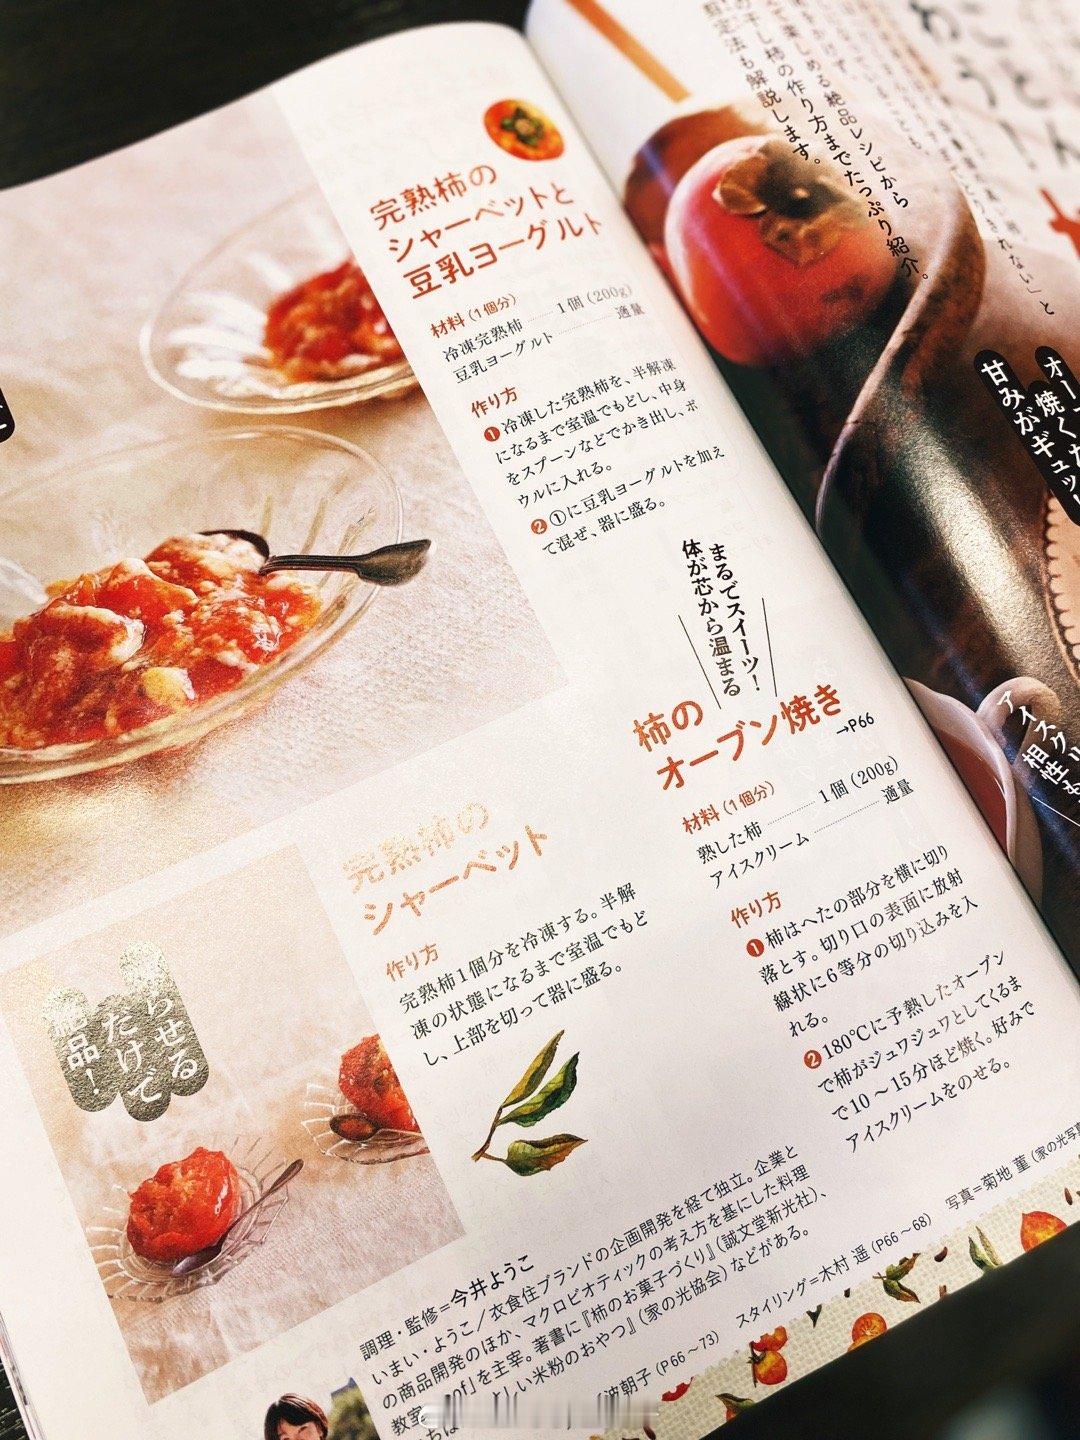 完熟柿の
シャーベットと
豆乳ヨーグルト
材料（1個分）
冷凍完熟柿 1個（200g）
豆乳ヨーグルト 適量
作り方
❶冷凍した完熟柿を、半解凍
になるまで室温でもどし、中身
をスプーンなどでかき出し、ボ
ウルに入れる。
❷①に豆乳ヨーグルトを加え
て混ぜ、器に盛る。
まるでスイーツ！
体が芯から温まる
柿の
オーブン焼き
→P66
材料（1個分）
熟した柿 1個（200g）
アイスクリーム 適量
作り方
❶柿はへたの部分を横に切り
落とす。切り口の表面に放射
線状に6等分の切り込みを入
れる。
❷180℃に予熱したオーブン
で柿がジュワジュワとしてくるま
で10～15分ほど焼く。好みで
アイスクリームをのせる。
完熟柿の
シャーベット
作り方
完熟柿1個分を冷凍する。半解
凍の状態になるまで室温でもど
し、上部を切って器に盛る。
らせる
だけで
品！
調理・監修＝今井ようこ
いまい・ようこ／衣食住ブランドの企画開発を経て独立。企業と
の商品開発のほか、マクロビオティックの考え方を基にした料理
教室 of」を主宰。著書に『柿のお菓子づくり』（誠文堂新光社）、
しい米粉のおやつ』（家の光協会）などがある。
波朝子（P66～73） スタイリング＝木村 遥（P66～68） 写真＝菊地 菫（家の光写真
て楽しめる絶品レシピから
干し柿の作り方までたっぷり紹介。
定法も解説します。
きれない」と
焼くた
甘みがギュッ
アイスクリ
相性も